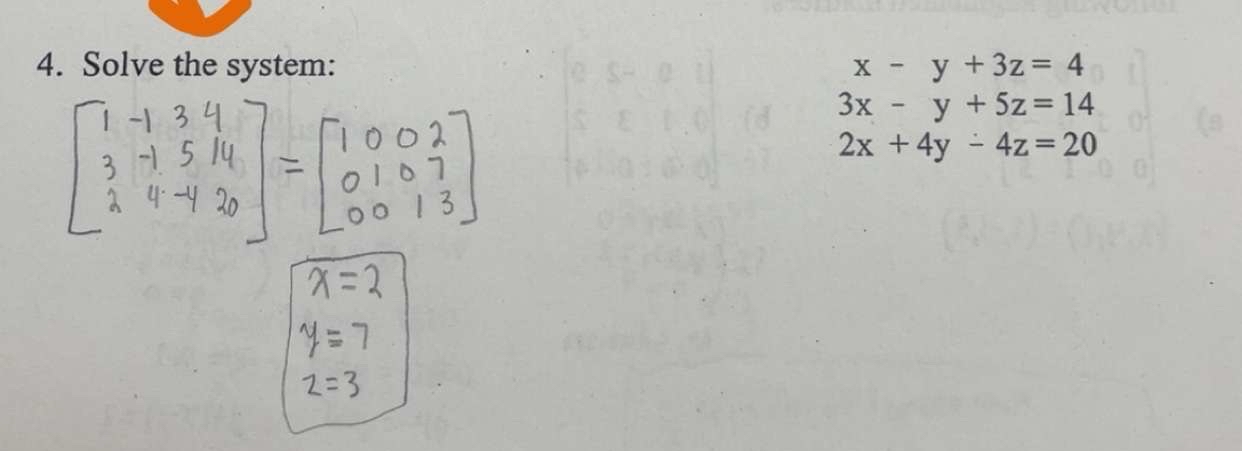 4. Solve the system:
x - y + 3z = 4
3x - y + 5z = 14
2x + 4y - 4z = 20
1 -1 3 4
3 -1 5 14
2 4 -4 20
=
1 0 0 2
0 1 0 7
0 0 1 3
x = 2
y = 7
z = 3